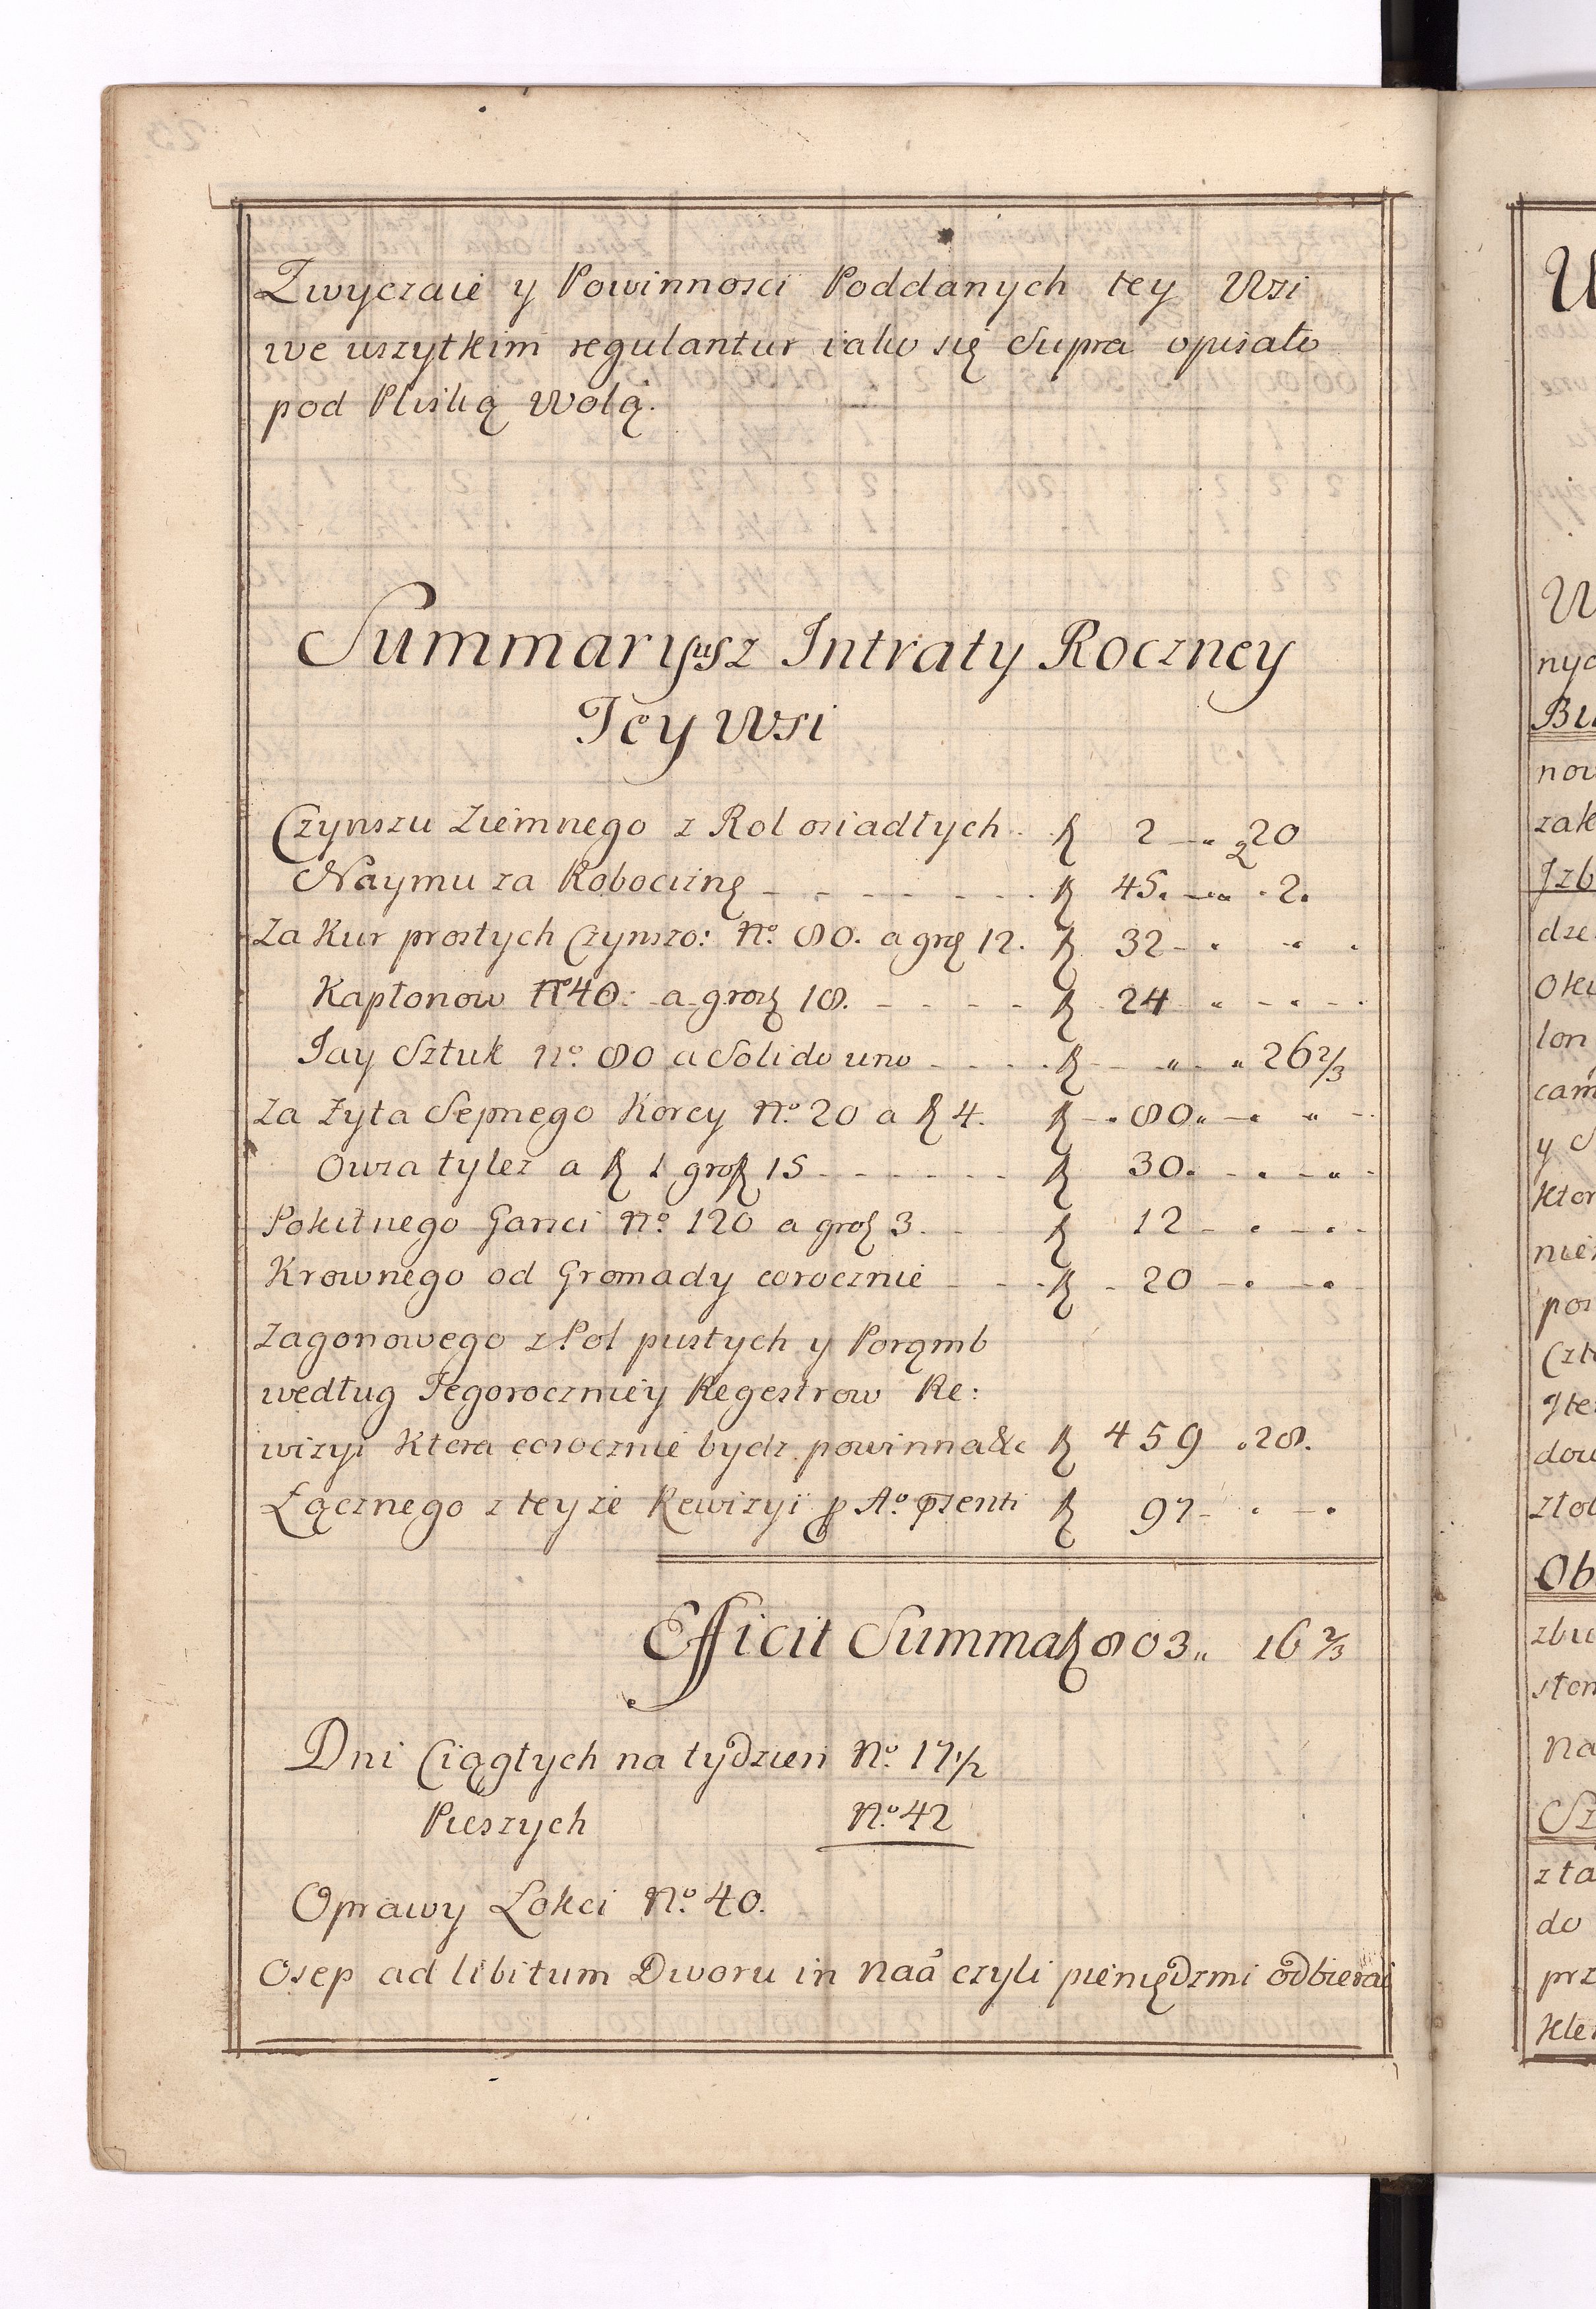 Zwyczaie y Powinnosci Poddanych tey Wsi
we wszytkim regulantur iako się Supra opisało
pod Pliską Wolą.
Summaryusz Intraty Roczney
Tey Wsi
Czynszu Ziemnego z Rol osiadłych. ƶ 2 " 20
Naymu za Robociznę ƶ 45. " 2.
Za Kur prostych Czynszo: No. 80. a grę 12. ƶ 32 - " "
Kapłonow No 40. a groszy 18. ƶ 24 " - "
Jay Sztuk No. 80 a Solido uno ƶ " " 26 2/3
Za Zyta Sepnego Korcy No. 20 a ƶ 4. ƶ 80 " "
Owsa tylez a ƶ 1 grosz 15 ƶ 30. " "
Pokitnego Garnci No. 120 a grosz 3. ƶ 12 - " "
Krownego od Gromady corocznie ƶ 20 - " "
Zagonowego z Pol pustych y Porąmb
według Tegoroczniey Regestrow Re:
wizyi Ktora corocznie bydz powinna &c ƶ 459 " 28.
Łącznego z teyze Rewizyi p Ao. pszenti ƶ 97 - " "
Efficit Summa ƶ 803 " 16 2/3
Dni Ciągłych na tydzien No. 17 1/2
Pieszych No. 42
Oprawy Łokci No. 40.
Osep ad libitum Dworu in Naa czyli pieniędzmi odbierać
U
W
nyc
Bu
now
zak
Jzb
dze
Oki
lon
cam
y S
Ktor
nie
pos
Czt
Jte
dow
złoz
Ob
zbu
sten
Na
Sz
zta
do
prz
kle